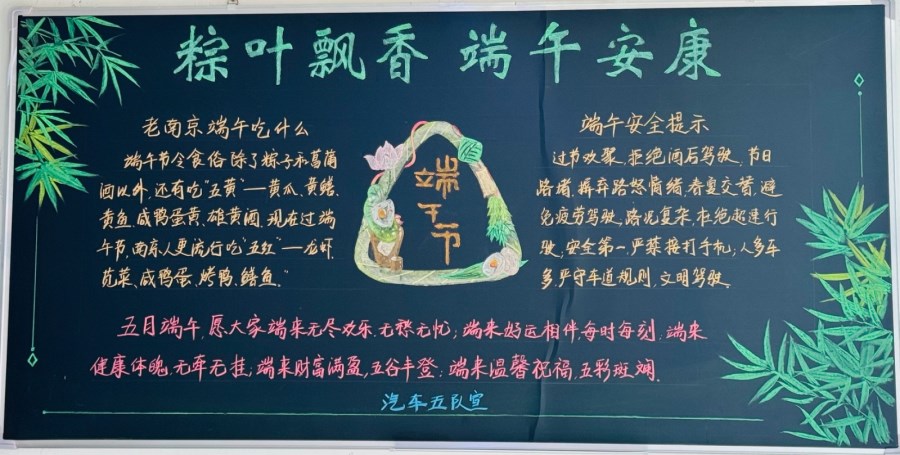 粽叶飘香 端午安康
老南京端午吃什么
端午节令食俗除了粽子和菖蒲
酒以外,还有吃"五黄"—黄瓜、黄鳝、
黄鱼、咸鸭蛋黄、雄黄酒,现在过端
午节,南京人更流行吃"五红"—龙虾、
苋菜、咸鸭蛋、烤鸭、鳝鱼."
端午节
端午安全提示
过节欢聚,拒绝酒后驾驶,节日
路堵,摒弃路怒情绪,春夏交替,避
免疲劳驾驶,路况复杂,杜绝超速行
驶,安全第一,严禁接打手机;人多车
多,严守车道规则,文明驾驶.
五月端午,愿大家端来无尽欢乐,无愁无忧;端来好运相伴,每时每刻;端来
健康体魄,无牵无挂;端来财富满盈,五谷丰登;端来温馨祝福,五彩斑斓.
汽车五队宣